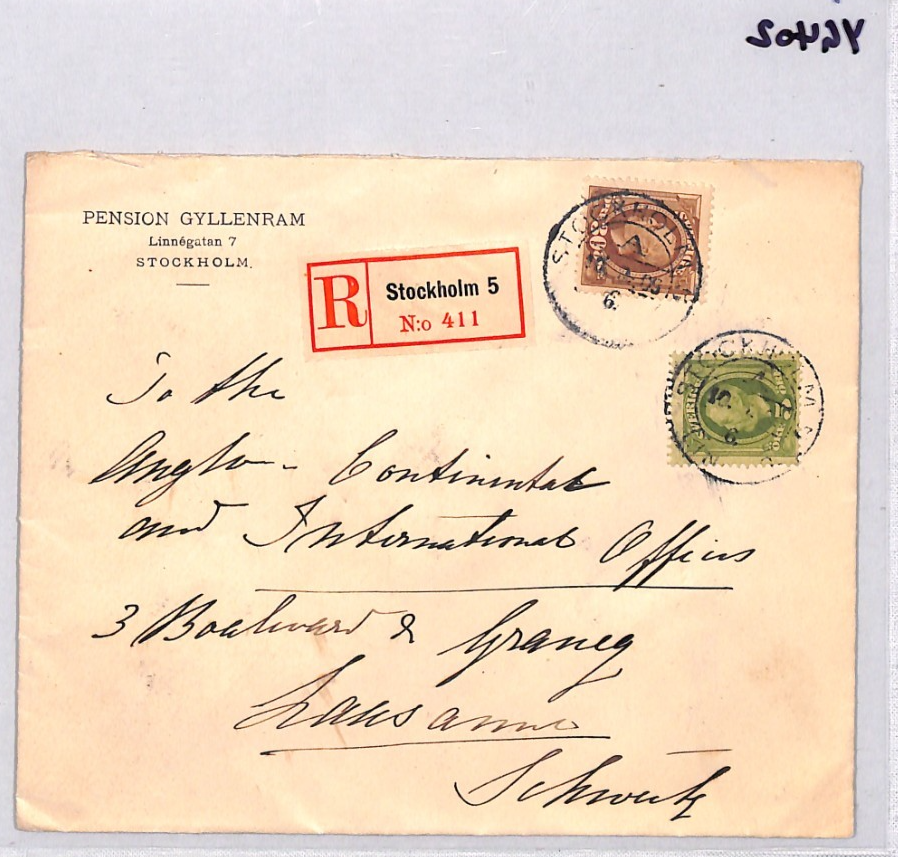 PENSION GYLLENRAM
Linnégatan 7
STOCKHOLM.
R Stockholm 5
N:o 411
STOCKHOLM
6.
30
STOCKHOLM
15
6
SVERIGE
ÖRE
To the
Anglo-Continental
and International Offices
3 Boulevard d Grancy
Lausanne
Schweitz